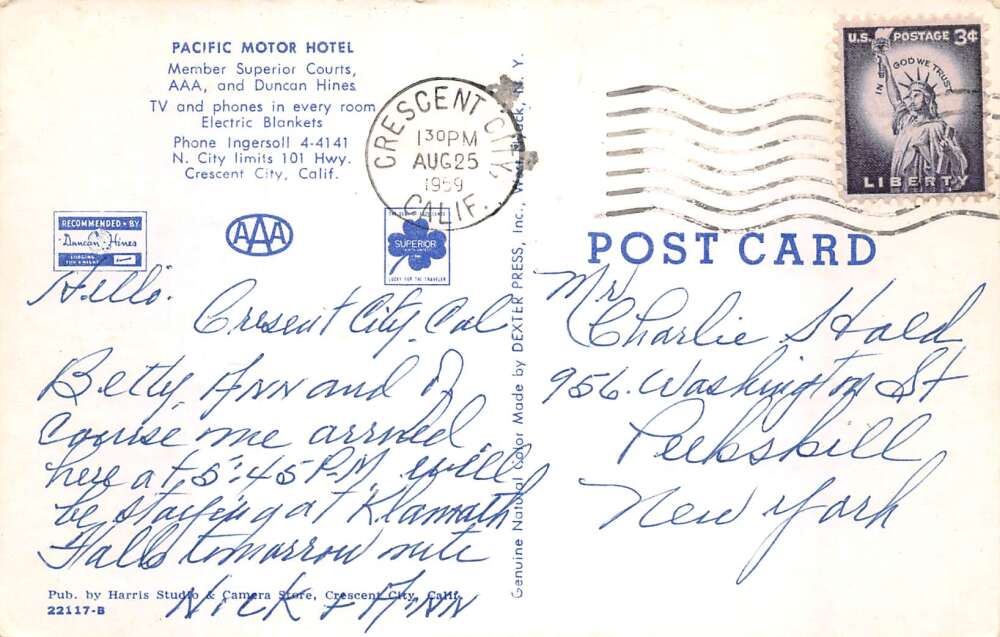 PACIFIC MOTOR HOTEL
Member Superior Courts,
AAA, and Duncan Hines
TV and phones in every room
Electric Blankets
Phone Ingersoll 4-4141
N. City limits 101 Hwy.
Crescent City, Calif.
RECOMMENDED BY
Duncan Hines
LODGING
AAA
SUPERIOR
LUCKY FOR THE TRAVELER
CRESCENT CITY,
1 30 PM
AUG 25
1959
CALIF.
U.S. POSTAGE 3¢
IN GOD WE TRUST
LIBERTY
POST CARD
Hello.
Cresent City, Cal
Betty, Ann and of
course me arrived
here at 5:45 P.M. will
be staying at Klamath
Falls tomorrow nite
Nick + Ann
Pub. by Harris Studio & Camera Store, Crescent City, Calif.
22117-B
Genuine Natural Color Made by DEXTER PRESS, Inc., West Nyack, N. Y.
Mr
Charlie
956 Washington St
Peekskill
New York